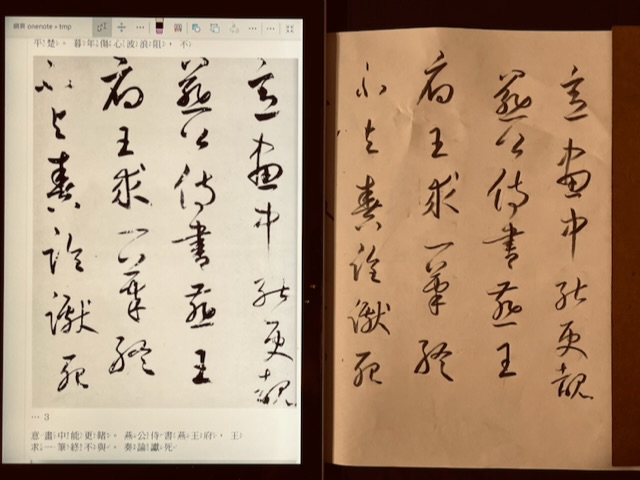 onenote
tmp
平楚。暮年傷心波浪阻，不
意畫中能更覩
燕公侍書燕王
府王求一筆終
不与奏論讞死
3
意畫中能更睹。燕公侍書燕王府，王
求一筆終不與。奏論讞死
意畫中能更覩
燕公侍書燕王
府王求一筆終
不与奏論讞死